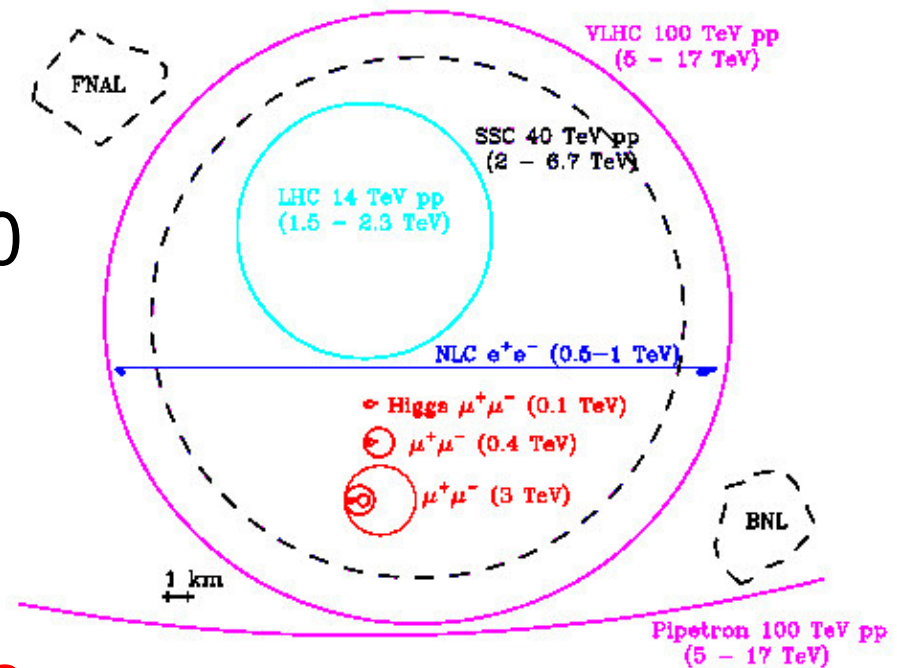 VLHC 100 TeV pp
(5 - 17 TeV)
FNAL
SSC 40 TeV pp
(2 - 6.7 TeV)
LHC 14 TeV pp
(1.5 - 2.3 TeV)
0
NLC e⁺e⁻ (0.5-1 TeV)
Higgs μ⁺μ⁻ (0.1 TeV)
μ⁺μ⁻ (0.4 TeV)
μ⁺μ⁻ (3 TeV)
BNL
1 km
Pipetron 100 TeV pp
(5 - 17 TeV)